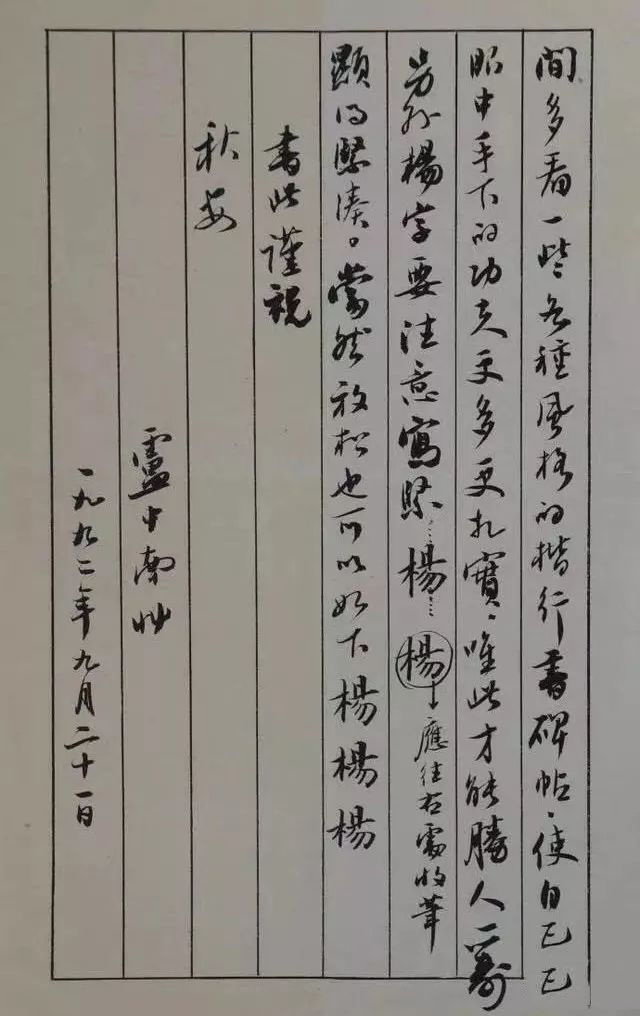 間多看一些各種風格的楷行書碑帖，使自己已
眼中手下的功夫更多更扎實，唯此才能勝人一籌
另外楊字要注意寫緊……楊……楊
應往右處收筆
顯得緊湊。當然放松也可以如下楊楊楊
書此謹祝
秋安
盧中南
一九九二年九月二十一日